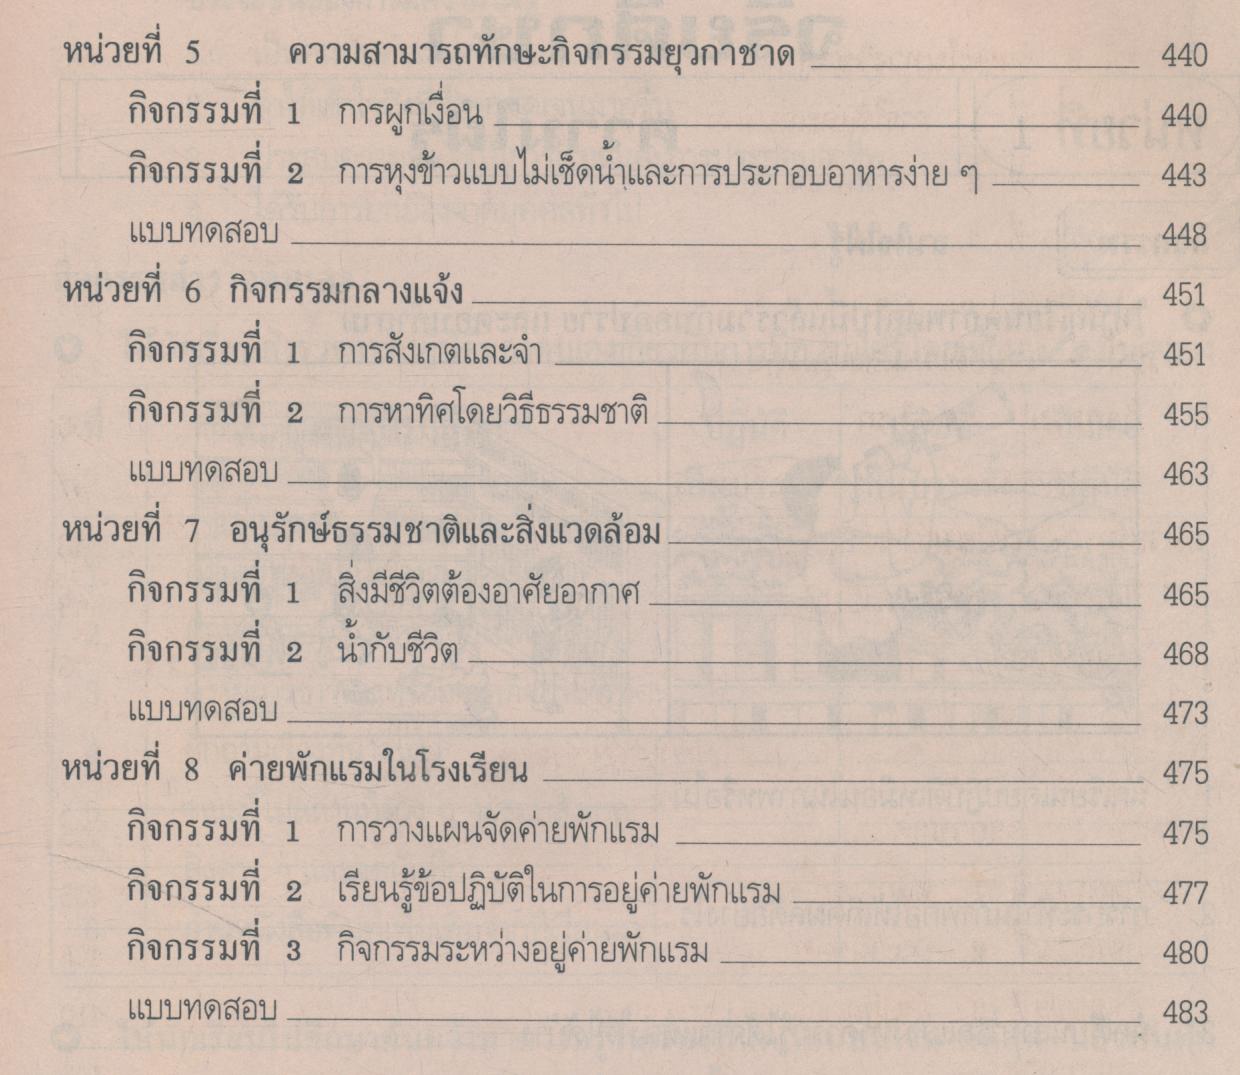 หน่วยที่ 5 ความสามารถทักษะกิจกรรมยุวกาชาด 440
กิจกรรมที่ 1 การผูกเงื่อน 440
กิจกรรมที่ 2 การหุงข้าวแบบไม่เช็ดน้ำและการประกอบอาหารง่าย ๆ 443
แบบทดสอบ 448
หน่วยที่ 6 กิจกรรมกลางแจ้ง 451
กิจกรรมที่ 1 การสังเกตและจำ 451
กิจกรรมที่ 2 การหาทิศโดยวิธีธรรมชาติ 455
แบบทดสอบ 463
หน่วยที่ 7 อนุรักษ์ธรรมชาติและสิ่งแวดล้อม 465
กิจกรรมที่ 1 สิ่งมีชีวิตต้องอาศัยอากาศ 465
กิจกรรมที่ 2 น้ำกับชีวิต 468
แบบทดสอบ 473
หน่วยที่ 8 ค่ายพักแรมในโรงเรียน 475
กิจกรรมที่ 1 การวางแผนจัดค่ายพักแรม 475
กิจกรรมที่ 2 เรียนรู้ข้อปฏิบัติในการอยู่ค่ายพักแรม 477
กิจกรรมที่ 3 กิจกรรมระหว่างอยู่ค่ายพักแรม 480
แบบทดสอบ 483